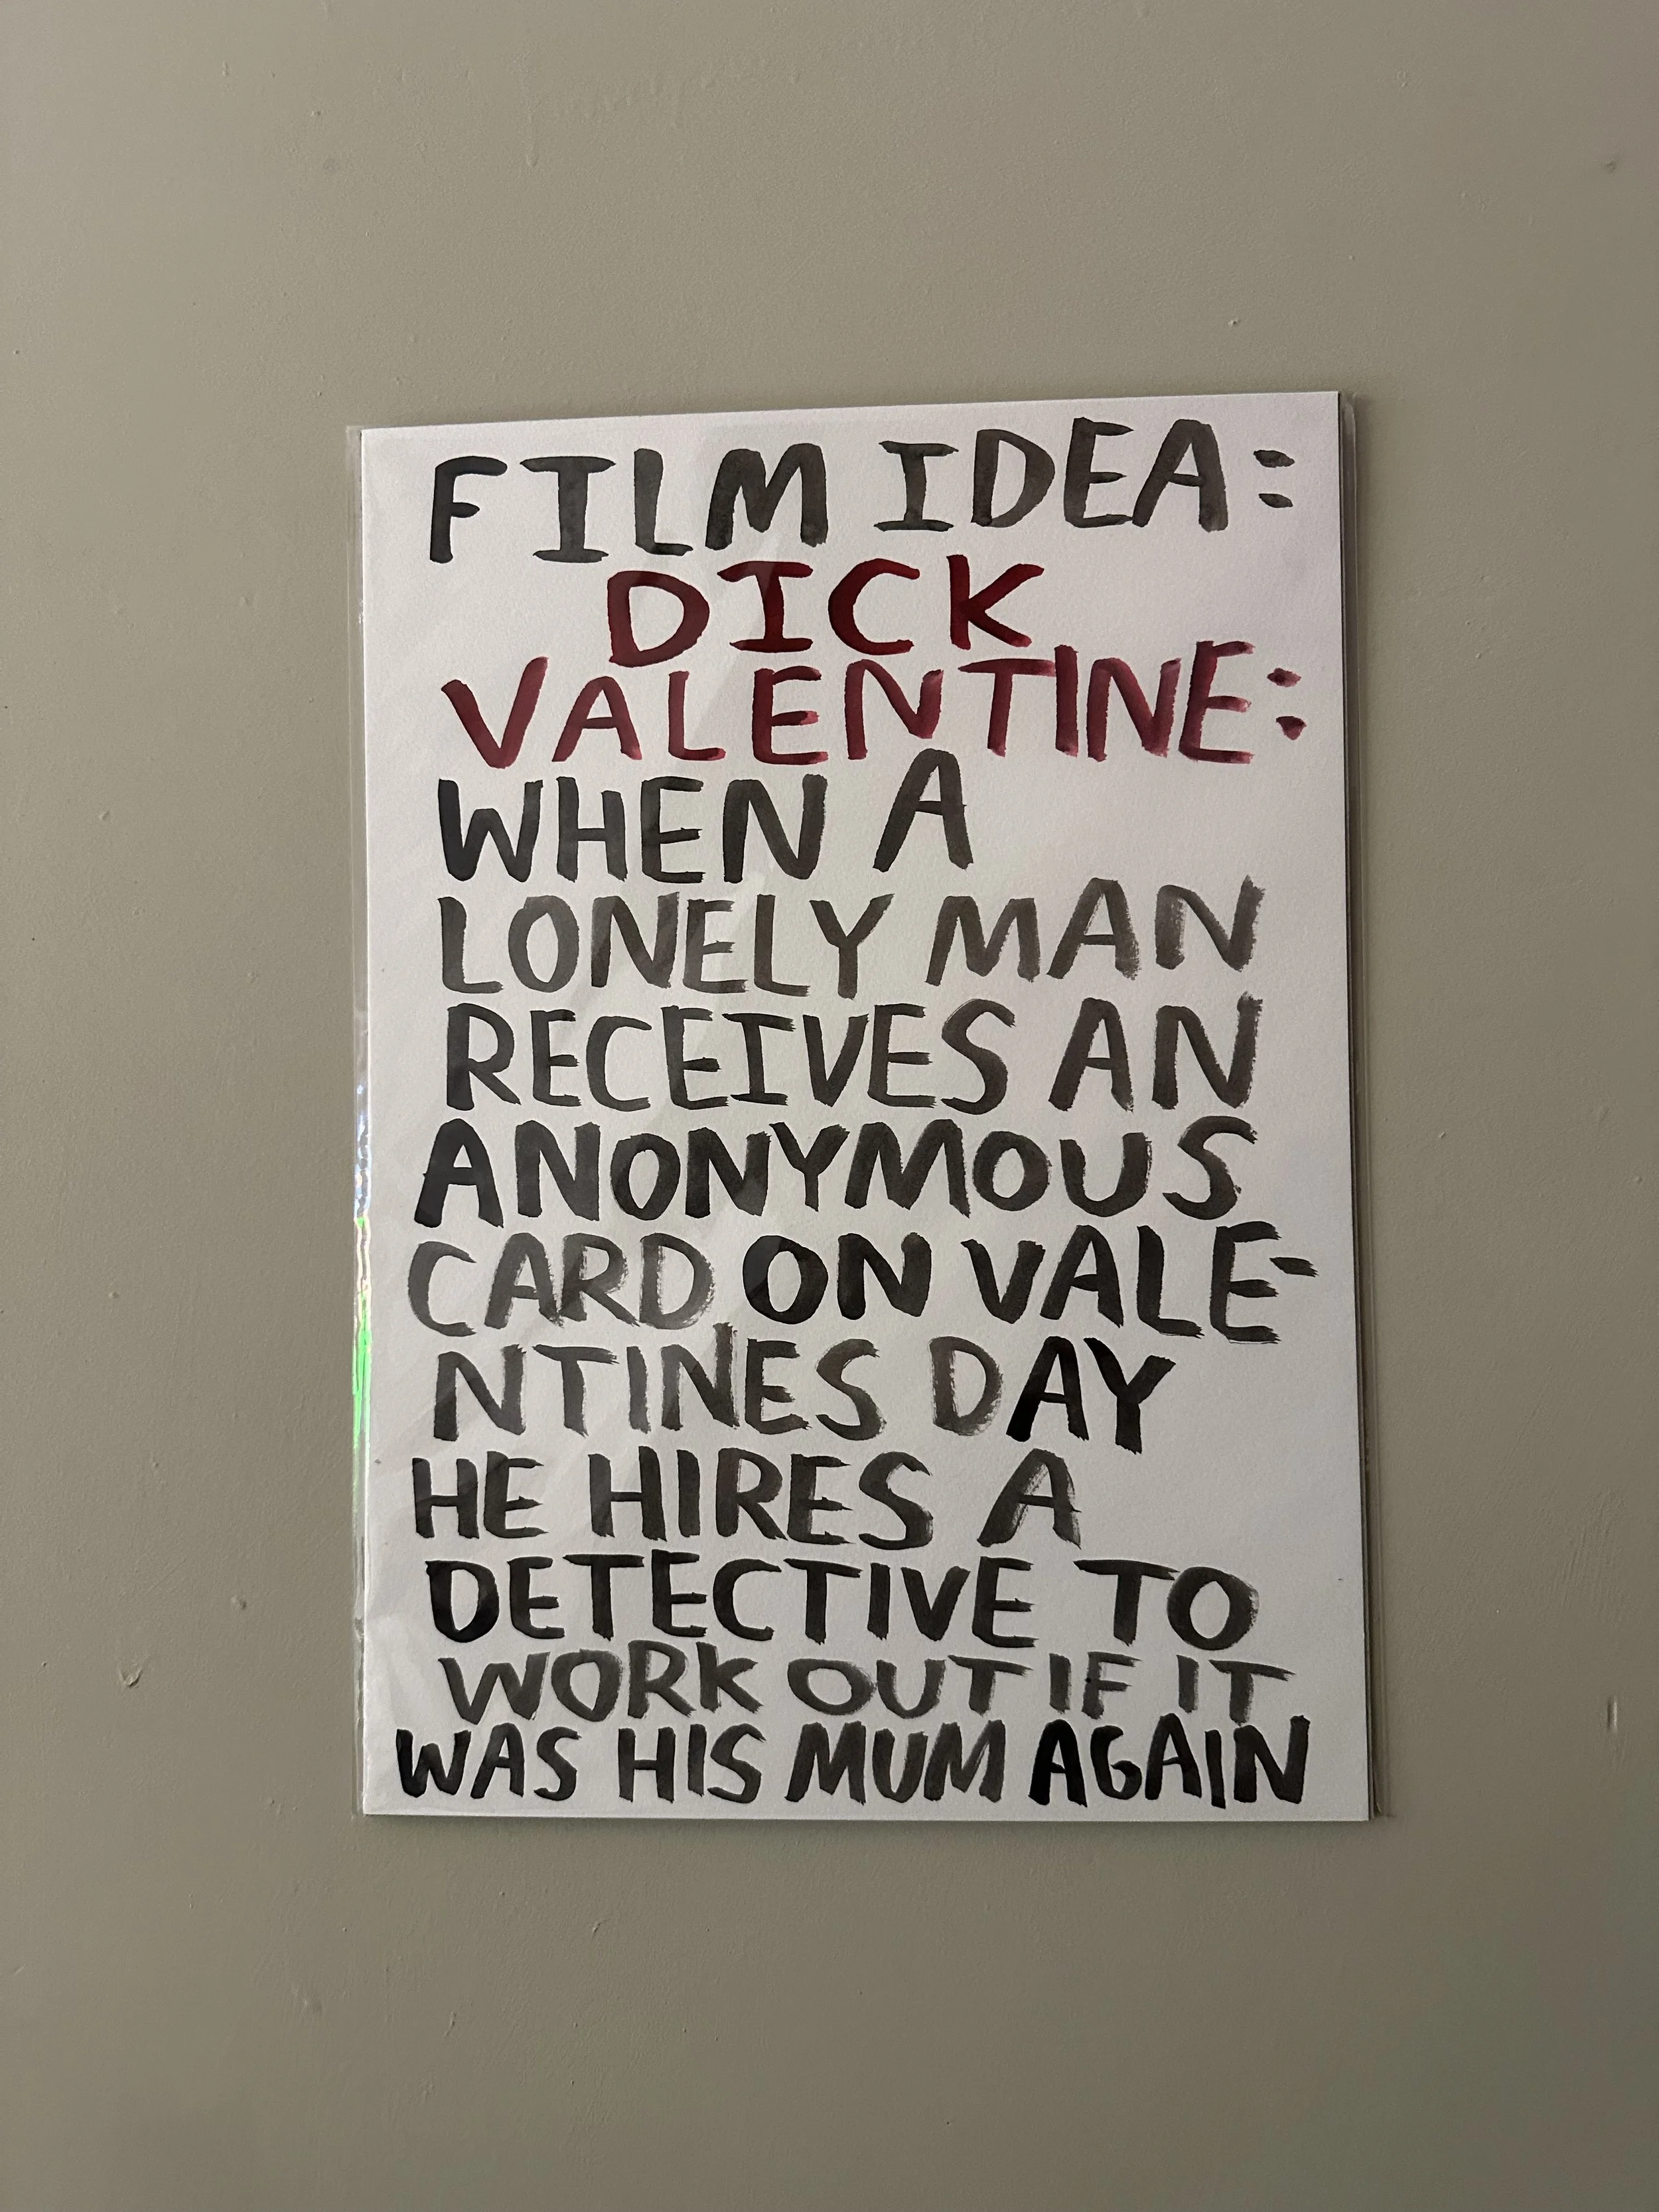 FILM IDEA:
DICK
VALENTINE:
WHEN A
LONELY MAN
RECEIVES AN
ANONYMOUS
CARD ON VALE-
NTINES DAY
HE HIRES A
DETECTIVE TO
WORK OUT IF IT
WAS HIS MUM AGAIN